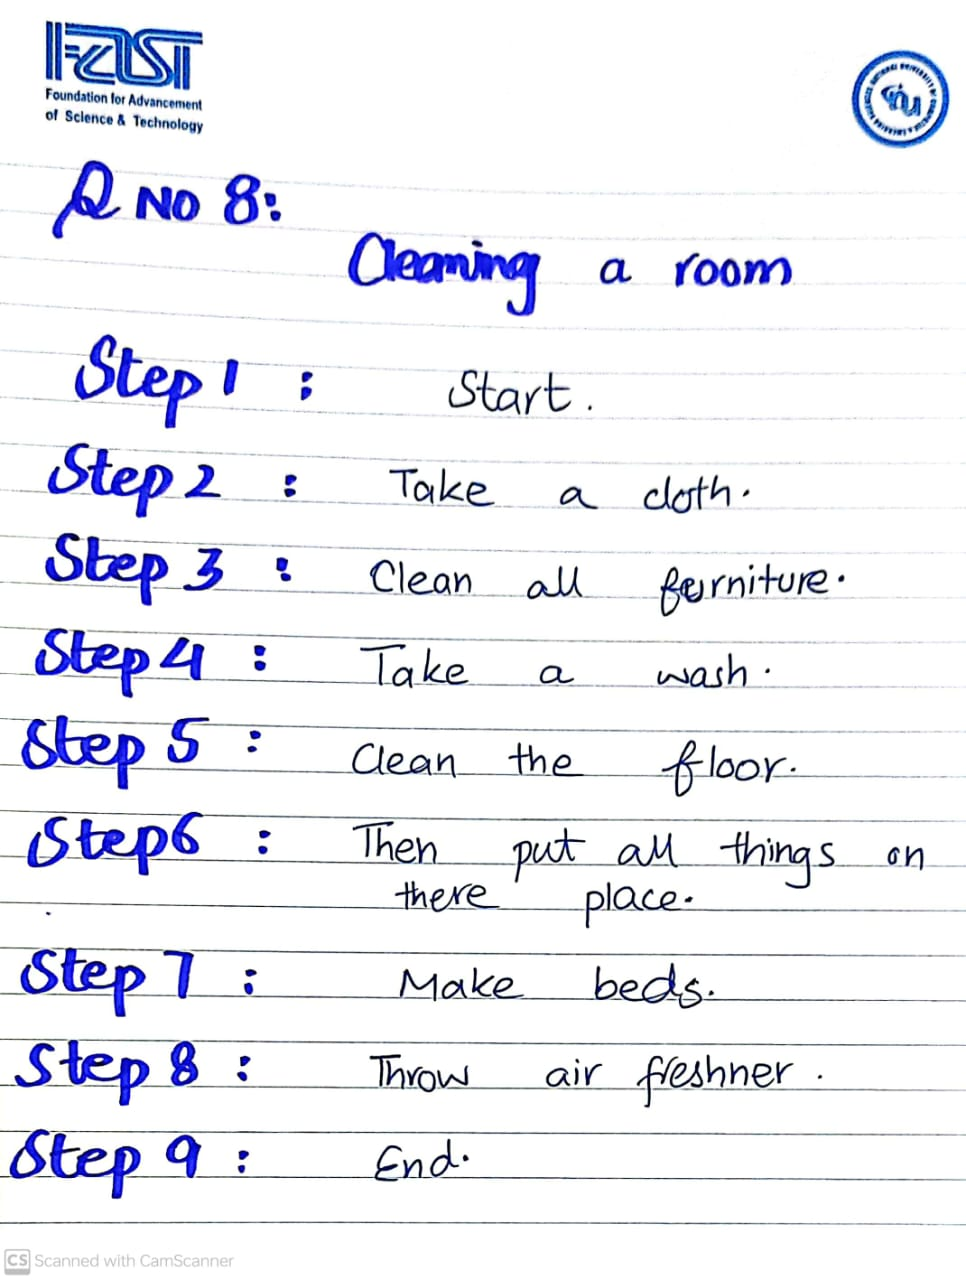 FAST
Foundation for Advancement
of Science & Technology
Q NO 8:
Cleaning a room
Step 1 : Start.
Step 2 : Take a cloth.
Step 3 : Clean all furniture.
Step 4 : Take a wash.
Step 5 : Clean the floor.
Step6 : Then put all things on
there place.
Step 7 : Make beds.
Step 8 : Throw air freshner.
Step 9 : End.
CS Scanned with CamScanner